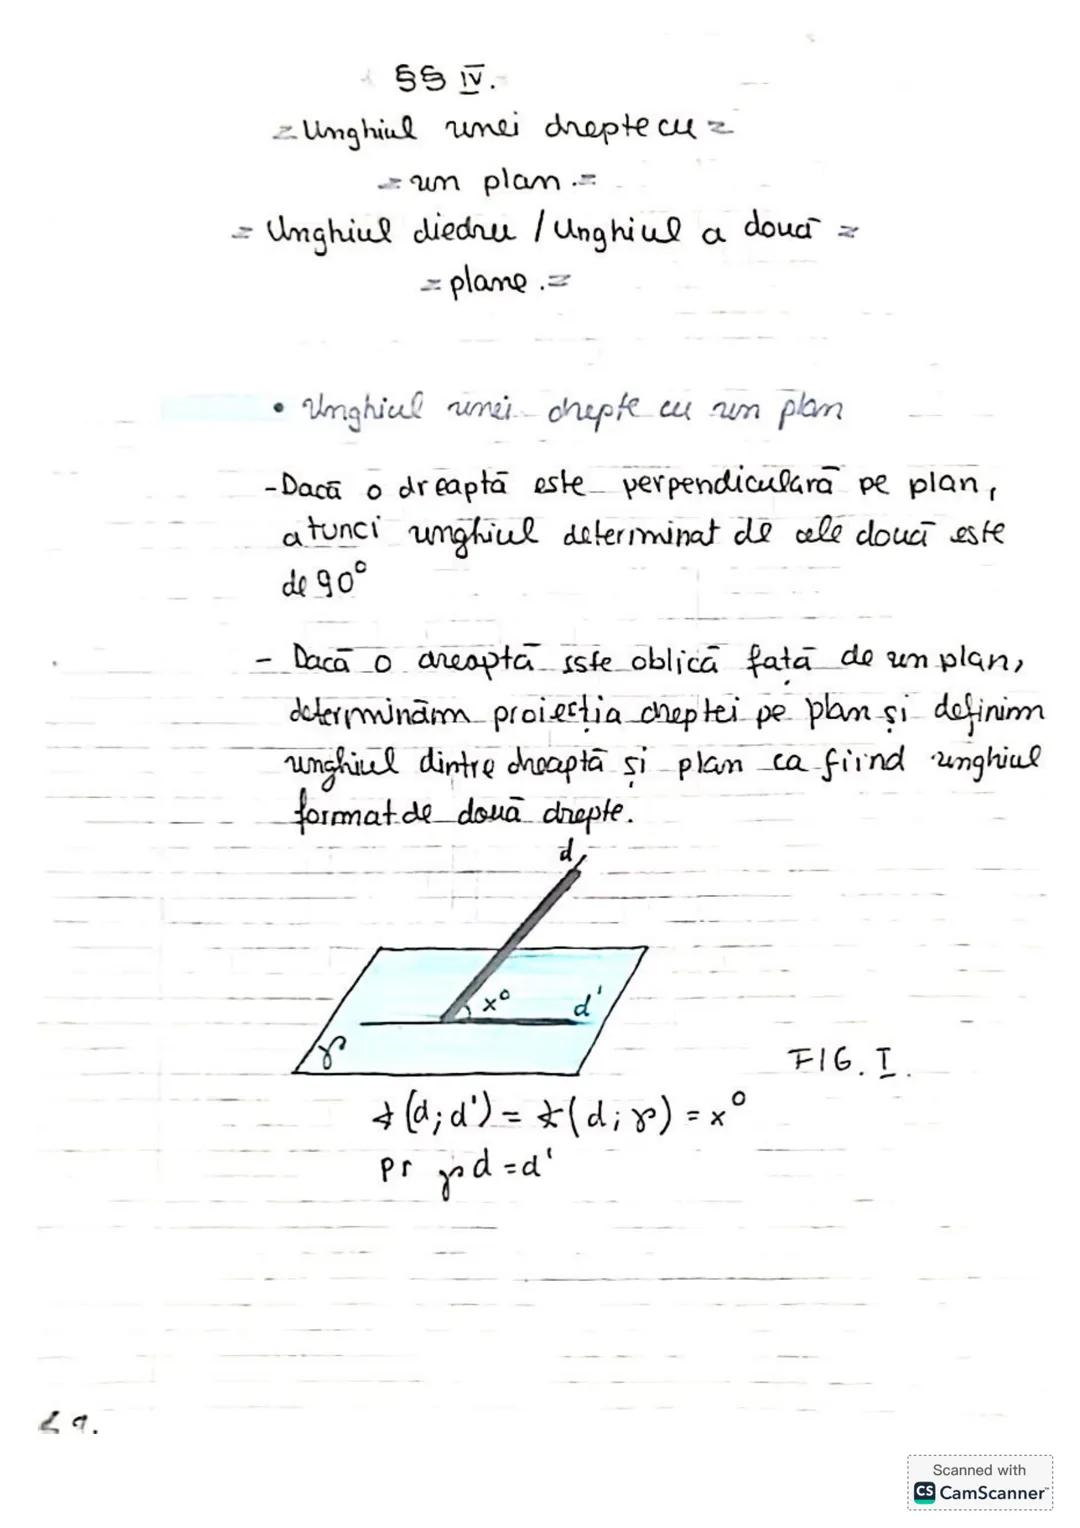 §§ IV.
= Unghiul unei drepte cu =
= un plan .=
= Unghiul diedru / Unghiul a două =
= plane .=
• Unghiul unei drepte cu un plan
- Dacă o dreaptă este perpendiculară pe plan,
atunci unghiul determinat de cele două este
de 90°
- Dacă o dreaptă este oblică față de un plan,
determinăm proiecția dreptei pe plan și definim
unghiul dintre dreaptă și plan ca fiind unghiul
format de două drepte.
d
x° d'
γ
FIG. I.
∢(d; d') = ∢(d; γ) = x°
pr γ d = d'
Scanned with
CS CamScanner